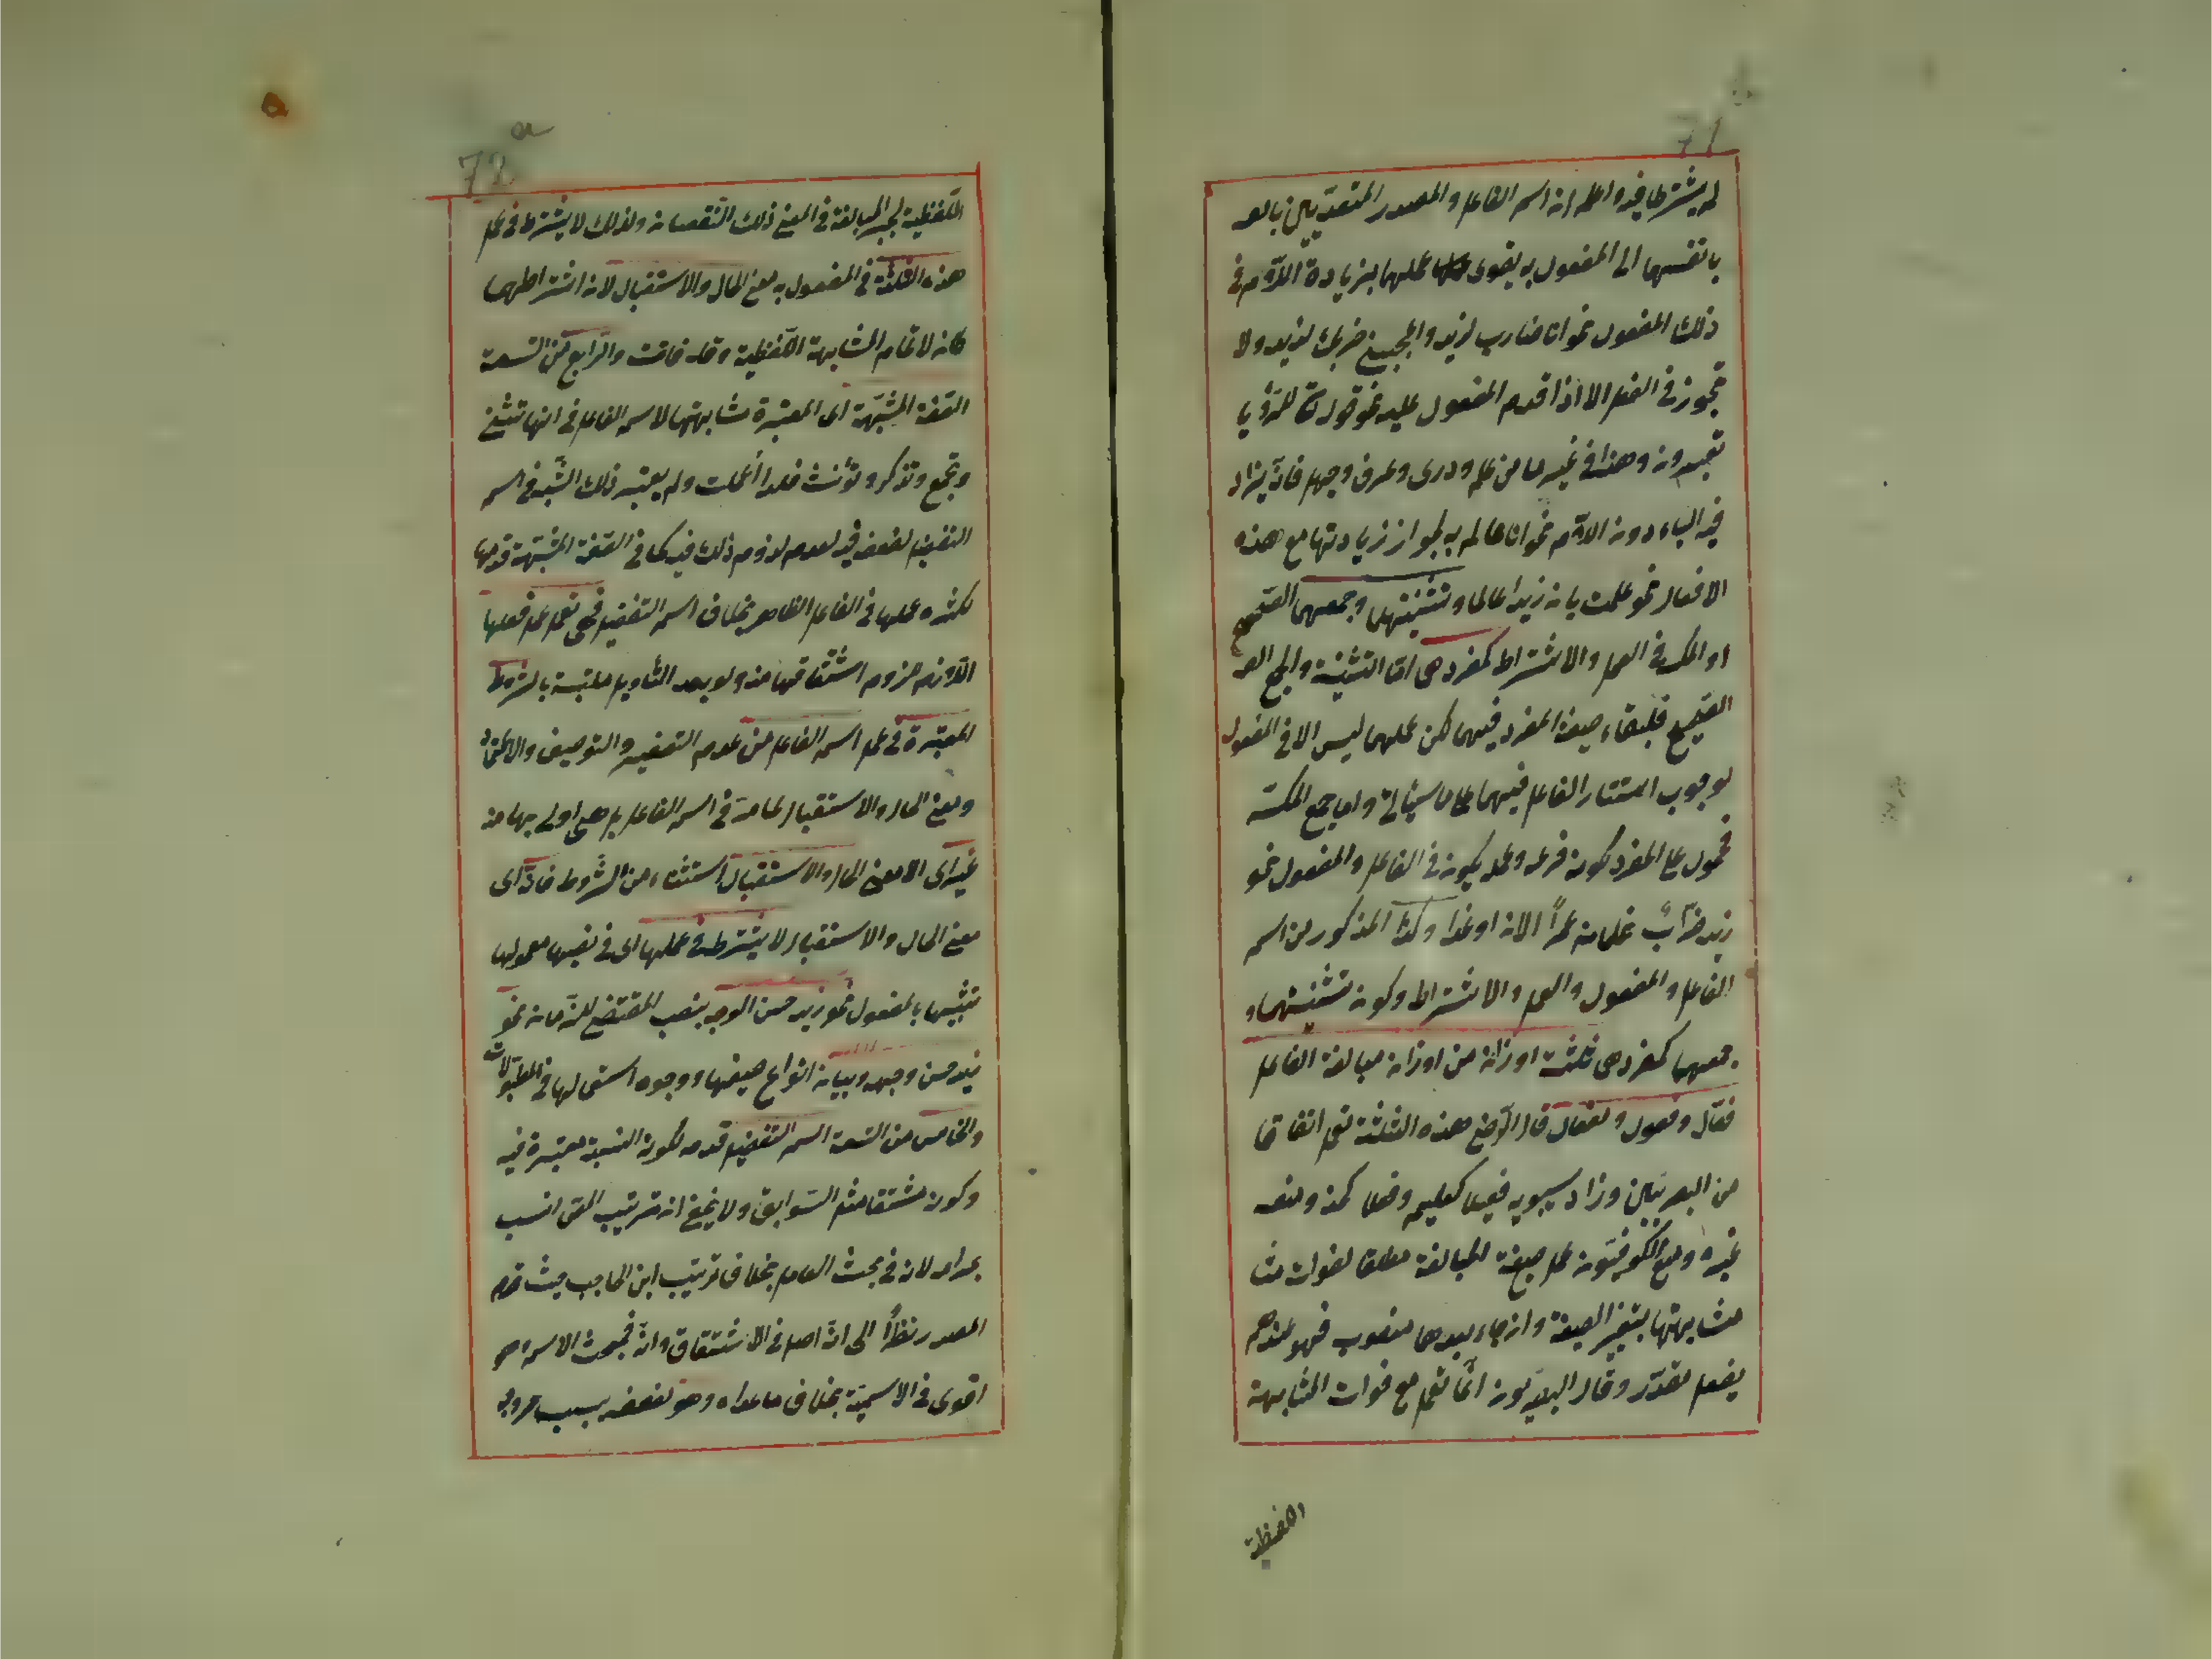 71
لم يشترطا فيه واعلم ان اسم الفاعل والمصدر المتعديين بالعه
بانفسهما الى المفعول به يقوى عملهما بزيادة اللام في
ذلك المفعول نحو انا ضارب لزيد واعجبني ضربك لزيد ولا
تجوز في الفعل الا اذا قدم المفعول عليه نحو قوله تعالى للرؤيا
تعبرون وهذا في غير ما من علم ودرى وعرف وجهل فانه يزاد
فيه الباء دون اللام نحو انا عالم به لجواز زيادتها مع هذه
الافعال نحو علمت بان زيدا عالم وتثنيتهما وجمعهما الصحيح
او المكسر في العمل والاشتراط كمفردهما اما التثنية والجمع
الصحيح فلبقاء صيغة المفرد فيهما لكن عملهما ليس الا في المفعول
لوجوب استتار الفاعل فيهما على ما سيأتي واما جمع المكسر
فمحمول على المفرد لكونه فرعه وعمله يكون في الفاعل والمفعول نحو
زيد ضرّاب غلمانه عمراً الان او غدا وكذا المذكور من اسم
الفاعل والمفعول والعمل والاشتراط وكون تثنيتهما و
جمعهما كمفردهما ثلثة اوزان من اوزان مبالغة الفاعل
فعّال وفعول ومفعال قال الرضى هذه الثلثة تعمل اتفاقا
من البصريين وزاد سيبويه فعيلا كعليم وفعلا كحذر ومنعه
غيره ومنع الكوفيون عمل صيغة المبالغة مطلقا لفوات
مشابهتها بتغير الصيغة وان جاء بعدها منصوب فهو عندهم
بفعل مقدّر وقال البصريون انما تعمل مع فوات المشابهة
اللفظية
72 a
اللفظية لجبر المبالغة في المعنى ذلك النقصان ولذلك لا يشترط في عمل
هذه الثلثة في المفعول به معنى الحال والاستقبال لان اشتراطهما
كان لاتمام المشابهة اللفظية وقد فاتت والرابع من التسعة
الصفة المشبّهة اى المعتبرة مشابهتها لاسم الفاعل في انها تثنى
وتجمع وتذكر وتؤنث فلذا اعملت ولم يعتبر ذلك الشبه في اسم
التفضيل لضعفه فيه لعدم لزوم ذلك فيه كما في الصفة المشبّهة قدمها
لكثرة عملها في الفاعل الظاهر بخلاف اسم التفضيل فهي تعمل عمل فعلها
اللازم لزوم اشتقاقها منه ولو بعد التأويل ملتبسة بالشروط
المعتبرة في عمل اسم الفاعل من عدم التصغير والتوصيف والاعتماد
ومعنى الحال والاستقبال لما مرّ في اسم الفاعل بل هي اولى بها منه
غير اى الا معنى الحال والاستقبال استثناء من الشروط فانه اى
معنى الحال والاستقبال لا يشترط في عملها اى في نصبها معمولها
تشبيها بالمفعول نحو زيد حسن الوجه بنصب المقتضى للزمان نحو
زيد حسن وجهه وبيان انواع صيغها ووجوه استعمالها في المطولات
والخامس من التسعة اسم التفضيل قدمه لكون النسبة معتبرة فيه
وكونه مشتقا مثل السوابق ولا يخفى ان ترتيب المص انسب
بمرامه لانه في بحث العامل بخلاف ترتيب ابن الحاجب حيث قدم
المصدر نظراً الى انه اصل في الاشتقاق وانه فمبحث الاسم وهو
اقوى في الاسمية بخلاف ما عداه وهو لضعفه بسبب